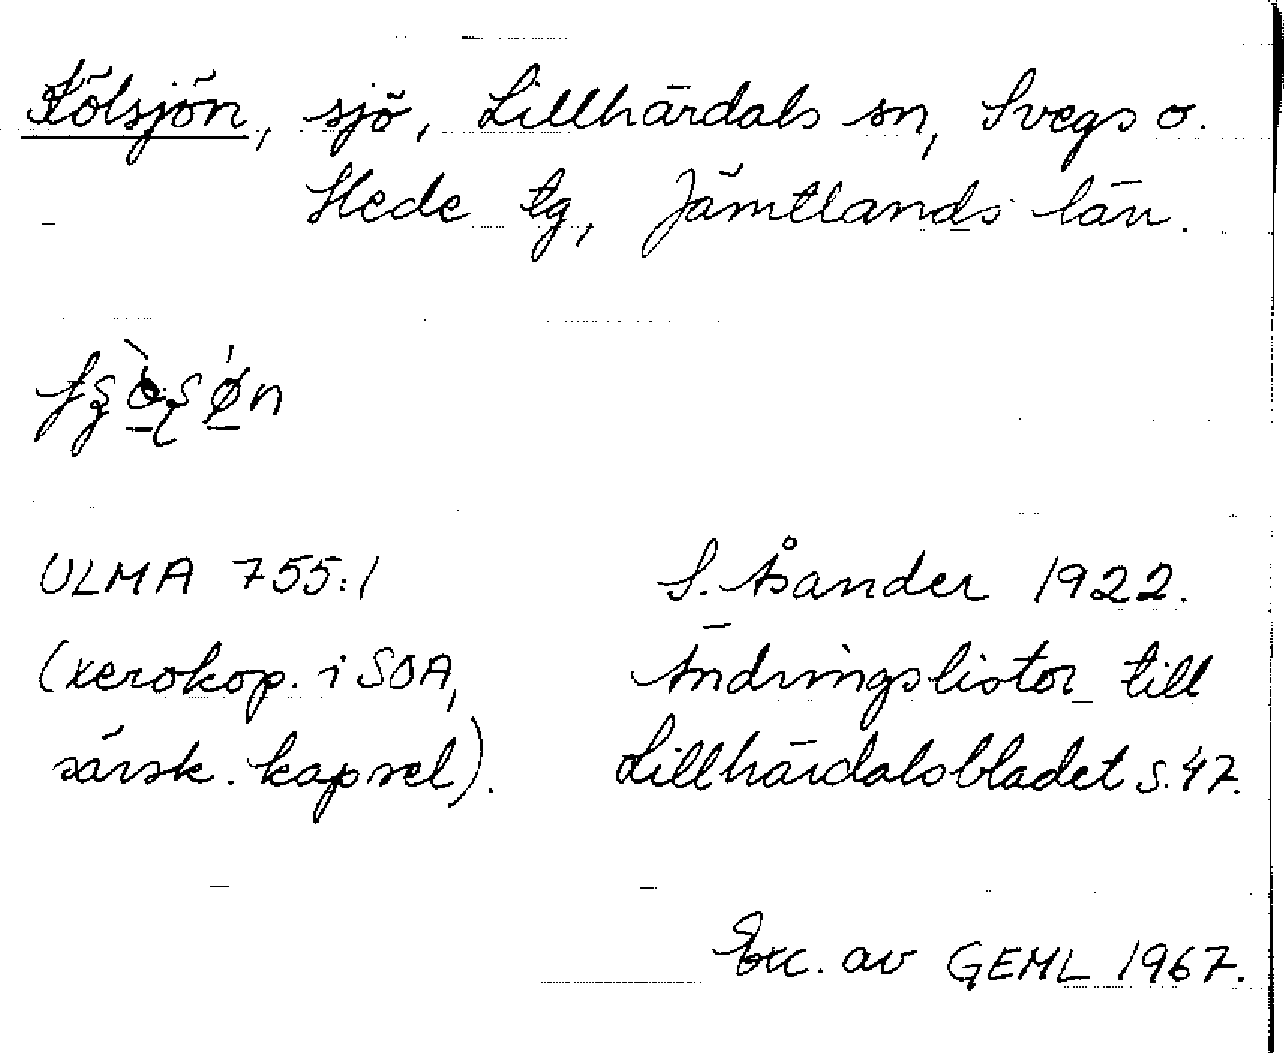 Kölsjön, sjö, Lillhärdals sn, Svegs o.
Hede tg, Jämtlands län.
ULMA 755:1
(xerokop. i SOA,
särsk. kapsel).
S. Åsander 1922.
Ändringslistor till
Lillhärdalsbladet s. 47.
Exc. av GEML 1967.